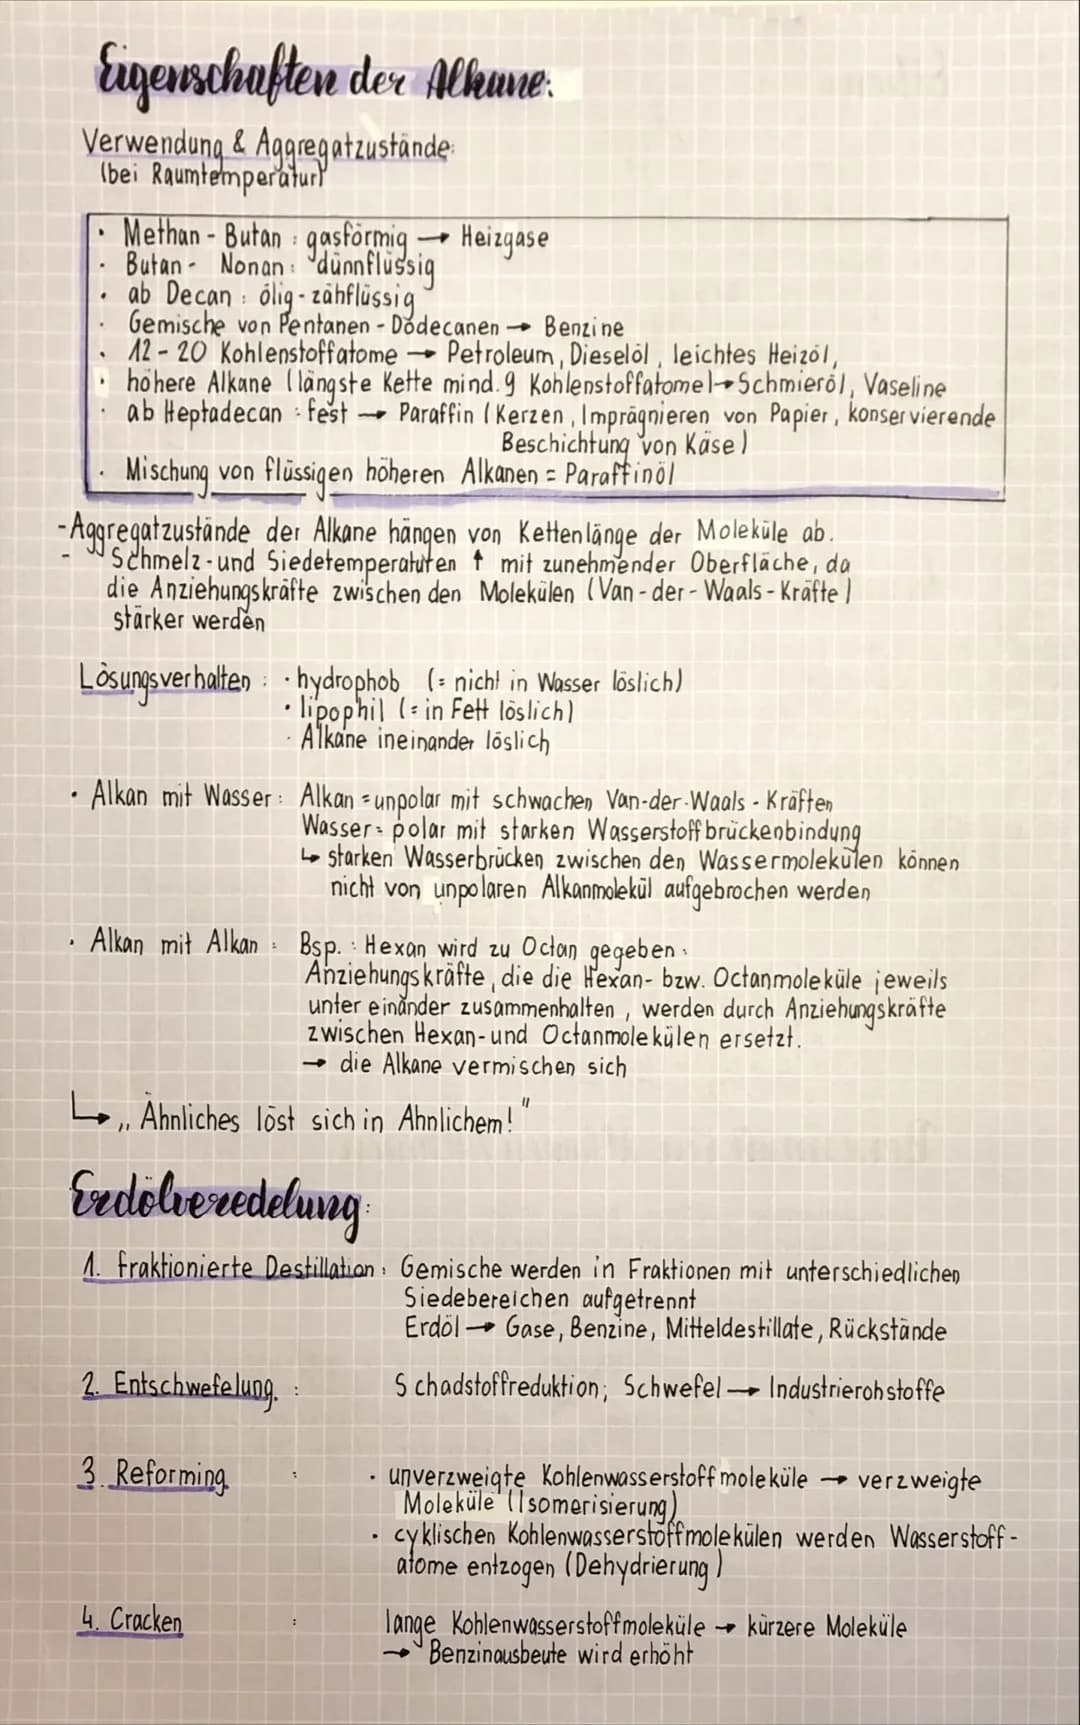 Eigenschaften der Alkane:
Verwendung & Aggregatzustände:
(bei Raumtemperatur)
· Methan - Butan : gasförmig → Heizgase
· Butan - Nonan : dünnflüssig
· ab Decan : ölig - zähflüssig
· Gemische von Pentanen - Dodecanen → Benzine
· 12 - 20 Kohlenstoffatome → Petroleum, Dieselöl, leichtes Heizöl,
· höhere Alkane (längste Kette mind. 9 Kohlenstoffatome) → Schmieröl, Vaseline
· ab Heptadecan : fest → Paraffin (Kerzen, Imprägnieren von Papier, konservierende
Beschichtung von Käse)
· Mischung von flüssigen höheren Alkanen = Paraffinöl
- Aggregatzustände der Alkane hängen von Kettenlänge der Moleküle ab.
- Schmelz- und Siedetemperaturen ↑ mit zunehmender Oberfläche, da
die Anziehungskräfte zwischen den Molekülen (Van-der-Waals-Kräfte)
stärker werden
Lösungsverhalten : · hydrophob (= nicht in Wasser löslich)
· lipophil (= in Fett löslich)
· Alkane ineinander löslich
· Alkan mit Wasser : Alkan = unpolar mit schwachen Van-der-Waals-Kräften
Wasser = polar mit starken Wasserstoffbrückenbindung
↳ starken Wasserbrücken zwischen den Wassermolekülen können
nicht von unpolaren Alkanmolekül aufgebrochen werden
· Alkan mit Alkan : Bsp. : Hexan wird zu Octan gegeben :
Anziehungskräfte, die die Hexan- bzw. Octanmoleküle jeweils
untereinander zusammenhalten, werden durch Anziehungskräfte
zwischen Hexan- und Octanmolekülen ersetzt.
→ die Alkane vermischen sich
↳ „Ähnliches löst sich in Ähnlichem!"
Erdölveredelung:
1. fraktionierte Destillation : Gemische werden in Fraktionen mit unterschiedlichen
Siedebereichen aufgetrennt
Erdöl → Gase, Benzine, Mitteldestillate, Rückstände
2. Entschwefelung : Schadstoffreduktion; Schwefel → Industrierohstoffe
3. Reforming : · unverzweigte Kohlenwasserstoffmoleküle → verzweigte
Moleküle (Isomerisierung)
· cyklischen Kohlenwasserstoffmolekülen werden Wasserstoff-
atome entzogen (Dehydrierung)
4. Cracken : lange Kohlenwasserstoffmoleküle → kürzere Moleküle
→ Benzinausbeute wird erhöht